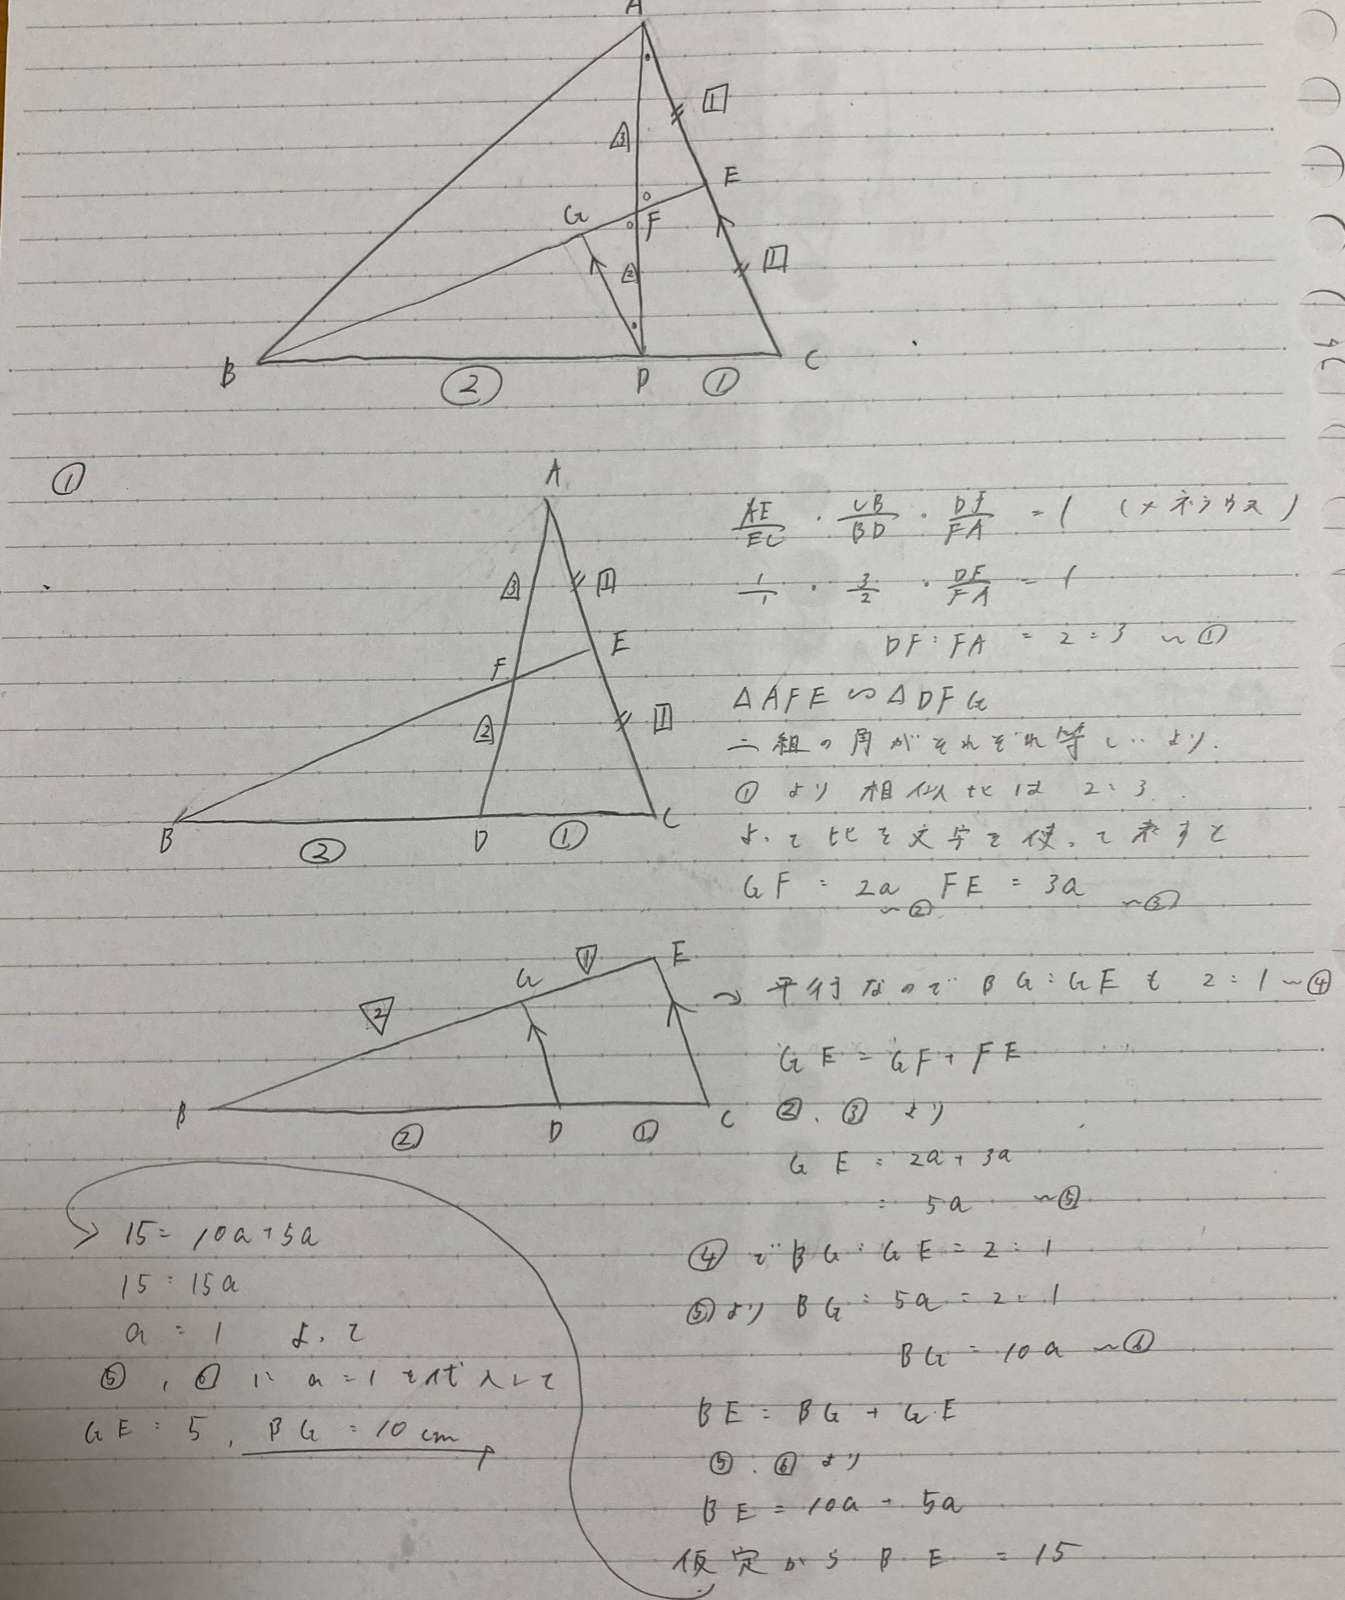 A
1
3
E
G
F
2
1
B
2
D
1
C
①
A
3
1
F
E
2
1
B
2
D
1
C
AE/EC · CB/BD · DF/FA = 1 (メネラウス)
1/1 · 3/2 · DF/FA = 1
DF:FA = 2:3 〜①
△AFE∽△DFG
二組の角がそれぞれ等しいより.
①より 相似比は 2:3.
よって比を文字を使って表すと
GF = 2a FE = 3a
〜② 〜③
1
E
G
2
B
2
D
1
C
→ 平行なので BG:GEも 2:1 〜④
GE = GF + FE
②、③ より
GE = 2a + 3a
= 5a 〜⑤
④で BG:GE = 2:1
⑤より BG:5a = 2:1
BG = 10a 〜⑥
BE = BG + GE
⑤、⑥より
BE = 10a + 5a
仮定から BE = 15
15 = 10a + 5a
15 = 15a
a = 1 よって
⑤, ⑥に a = 1を代入して
GE = 5, BG = 10 cm